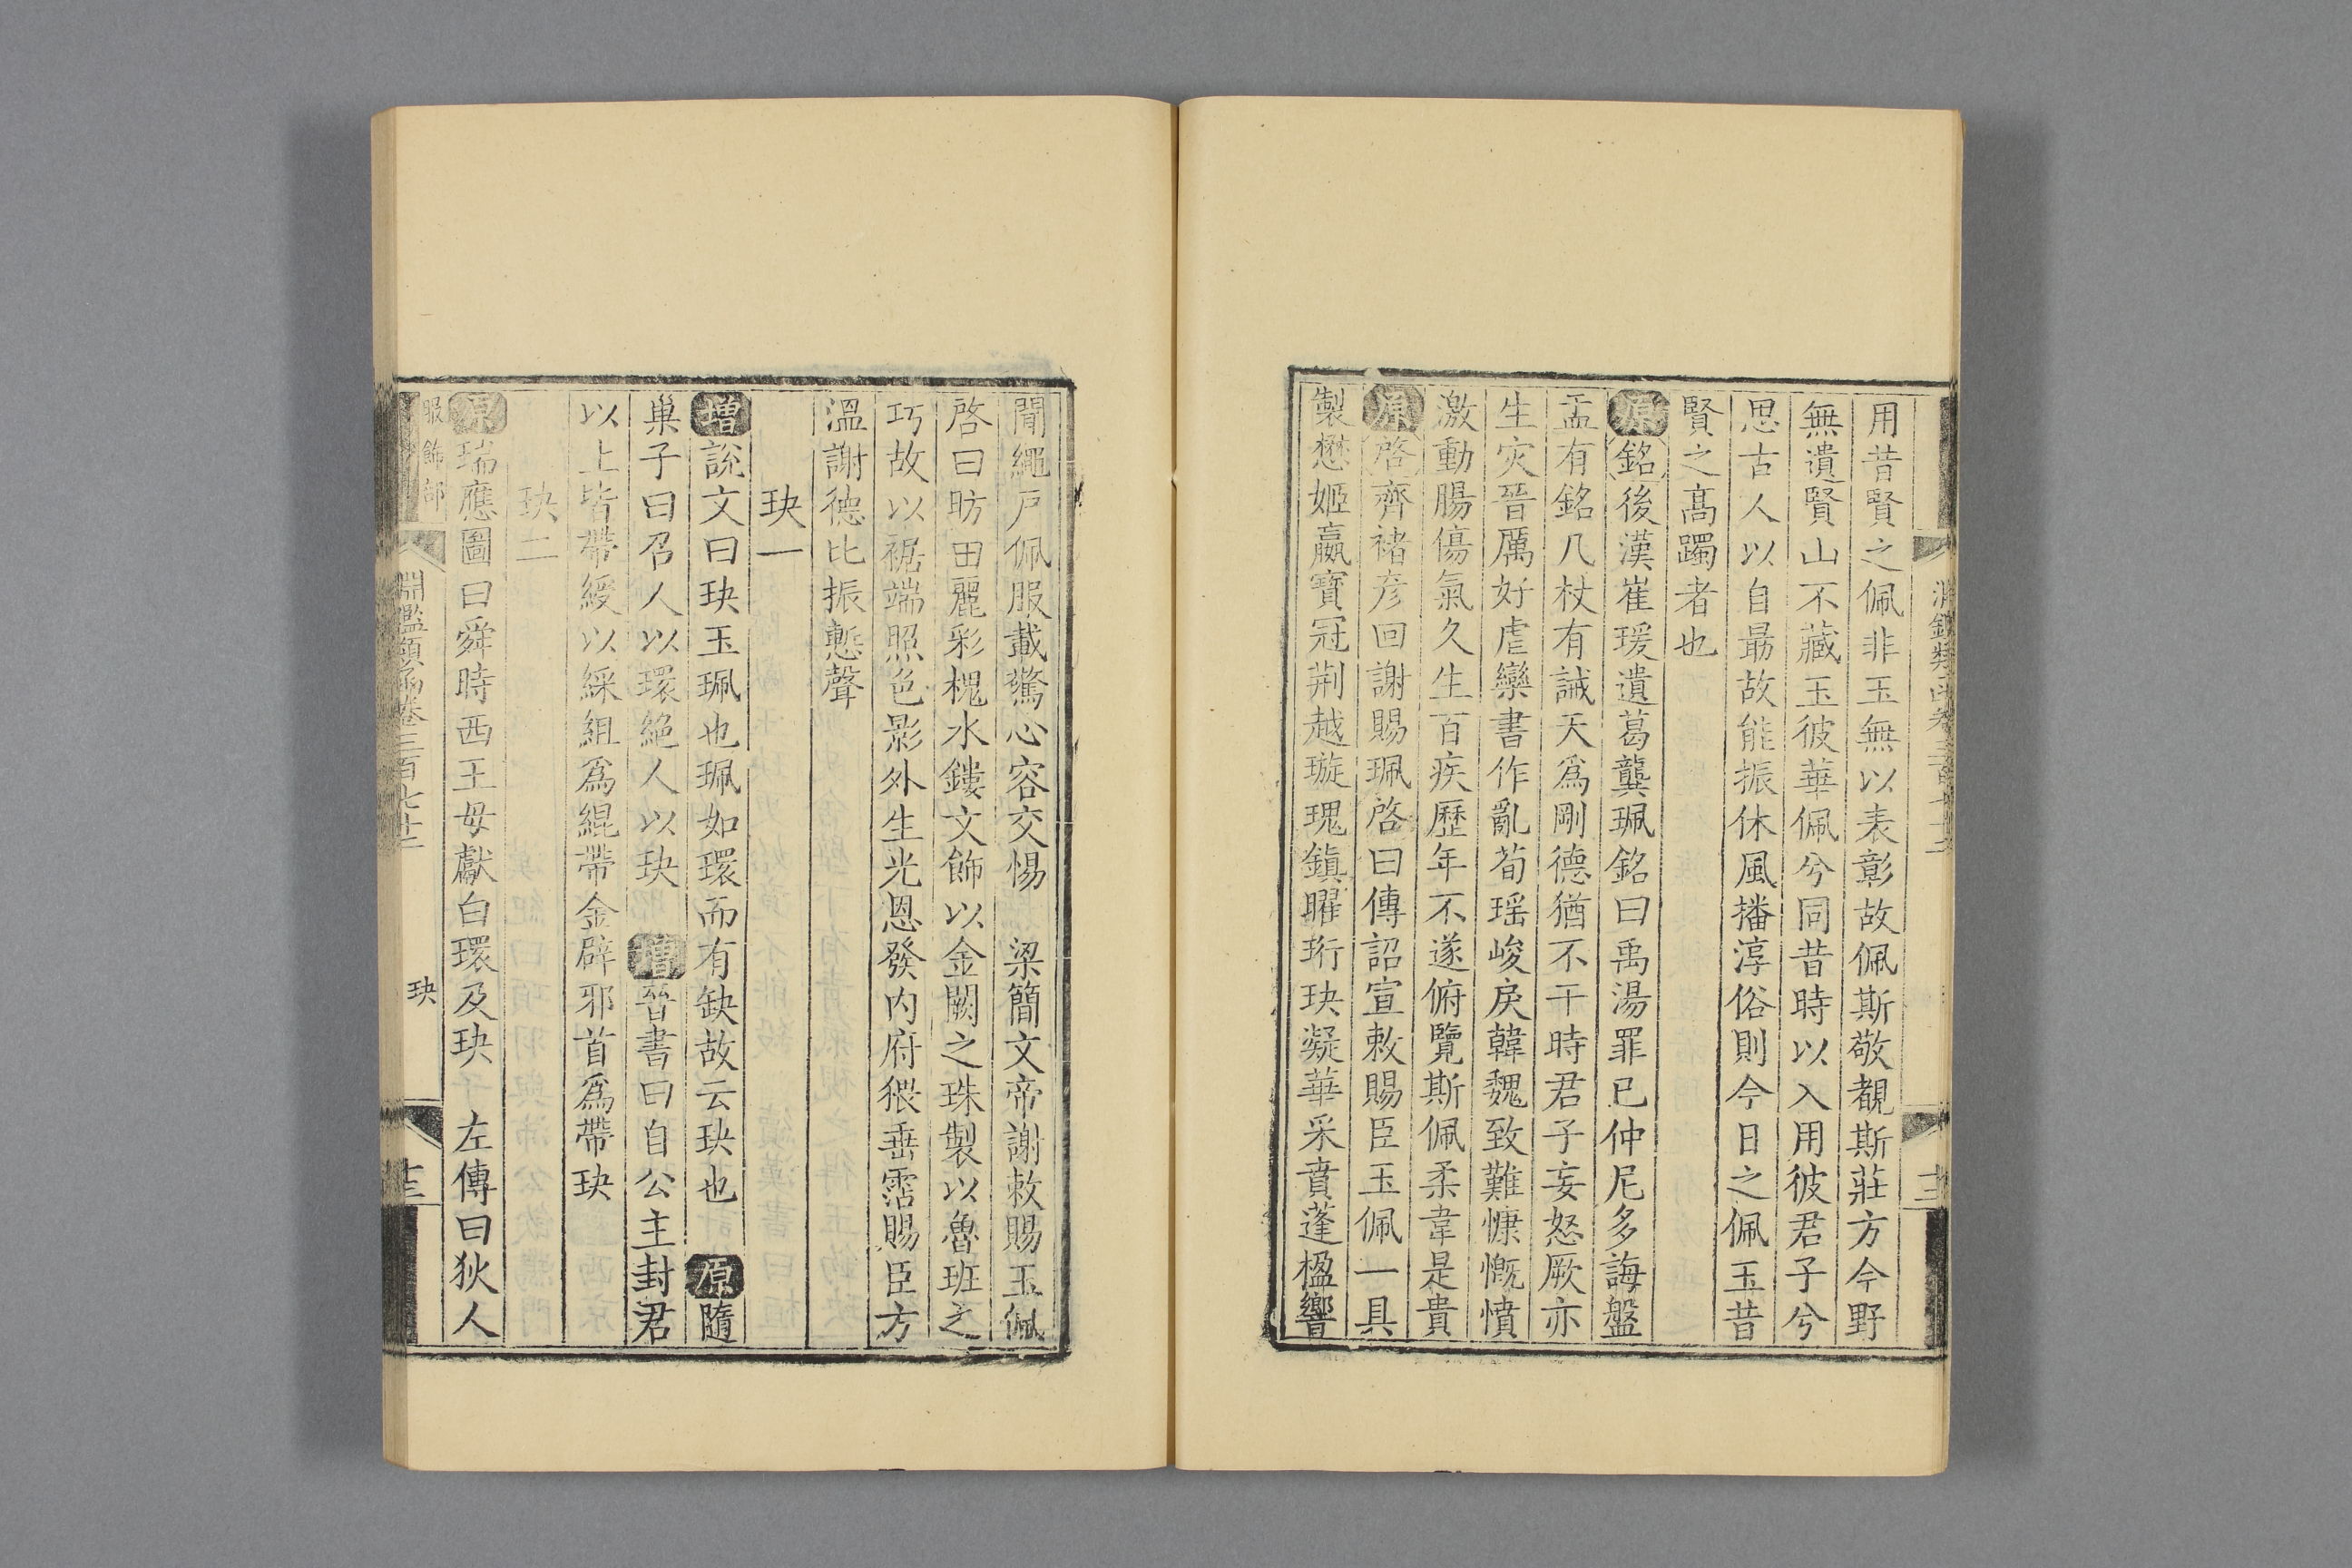 用昔賢之佩非玉無以表彰故佩斯敬覩斯莊方今野
無遺賢山不藏玉彼華佩兮同昔時以入用彼君子兮
思古人以自最故能振休風播淳俗則今日之佩玉昔
賢之髙躅者也
原銘後漢崔瑗遺葛龔珮銘曰禹湯罪已仲尼多誨盤
盂有銘几杖有誡天為剛德猶不干時君子妄怒厥亦
生灾晉厲好虐欒書作亂荀瑶峻戾韓魏致難慷慨憤
激動腸傷氣久生百疾歷年不遂俯覽斯佩柔韋是貴
原啓齊褚彦回謝賜珮啓曰傳詔宣敕賜臣玉佩一具
製懋姬嬴寶冠荆越璇瑰鎮曜珩玦凝華采賁蓬楹響
閒繩戸佩服載驚心容交惕 梁簡文帝謝敕賜玉佩
啓曰昉田麗彩槐水鏤文飾以金闕之珠製以魯班之
巧故以裾端照色影外生光恩發内府猥垂霑賜臣方
溫謝德比振慙聲
玦一
增説文曰玦玉珮也珮如環而有缺故云玦也 原隨
巢子曰召人以環絶人以玦 增晉書曰自公主封君
以上皆帶綬以綵組為緄帶金辟邪首為帶玦
玦二
原瑞應圖曰舜時西王母獻白環及玦 左傳曰狄人
服飾部 淵鑑類函卷三百七十二 玦 十三